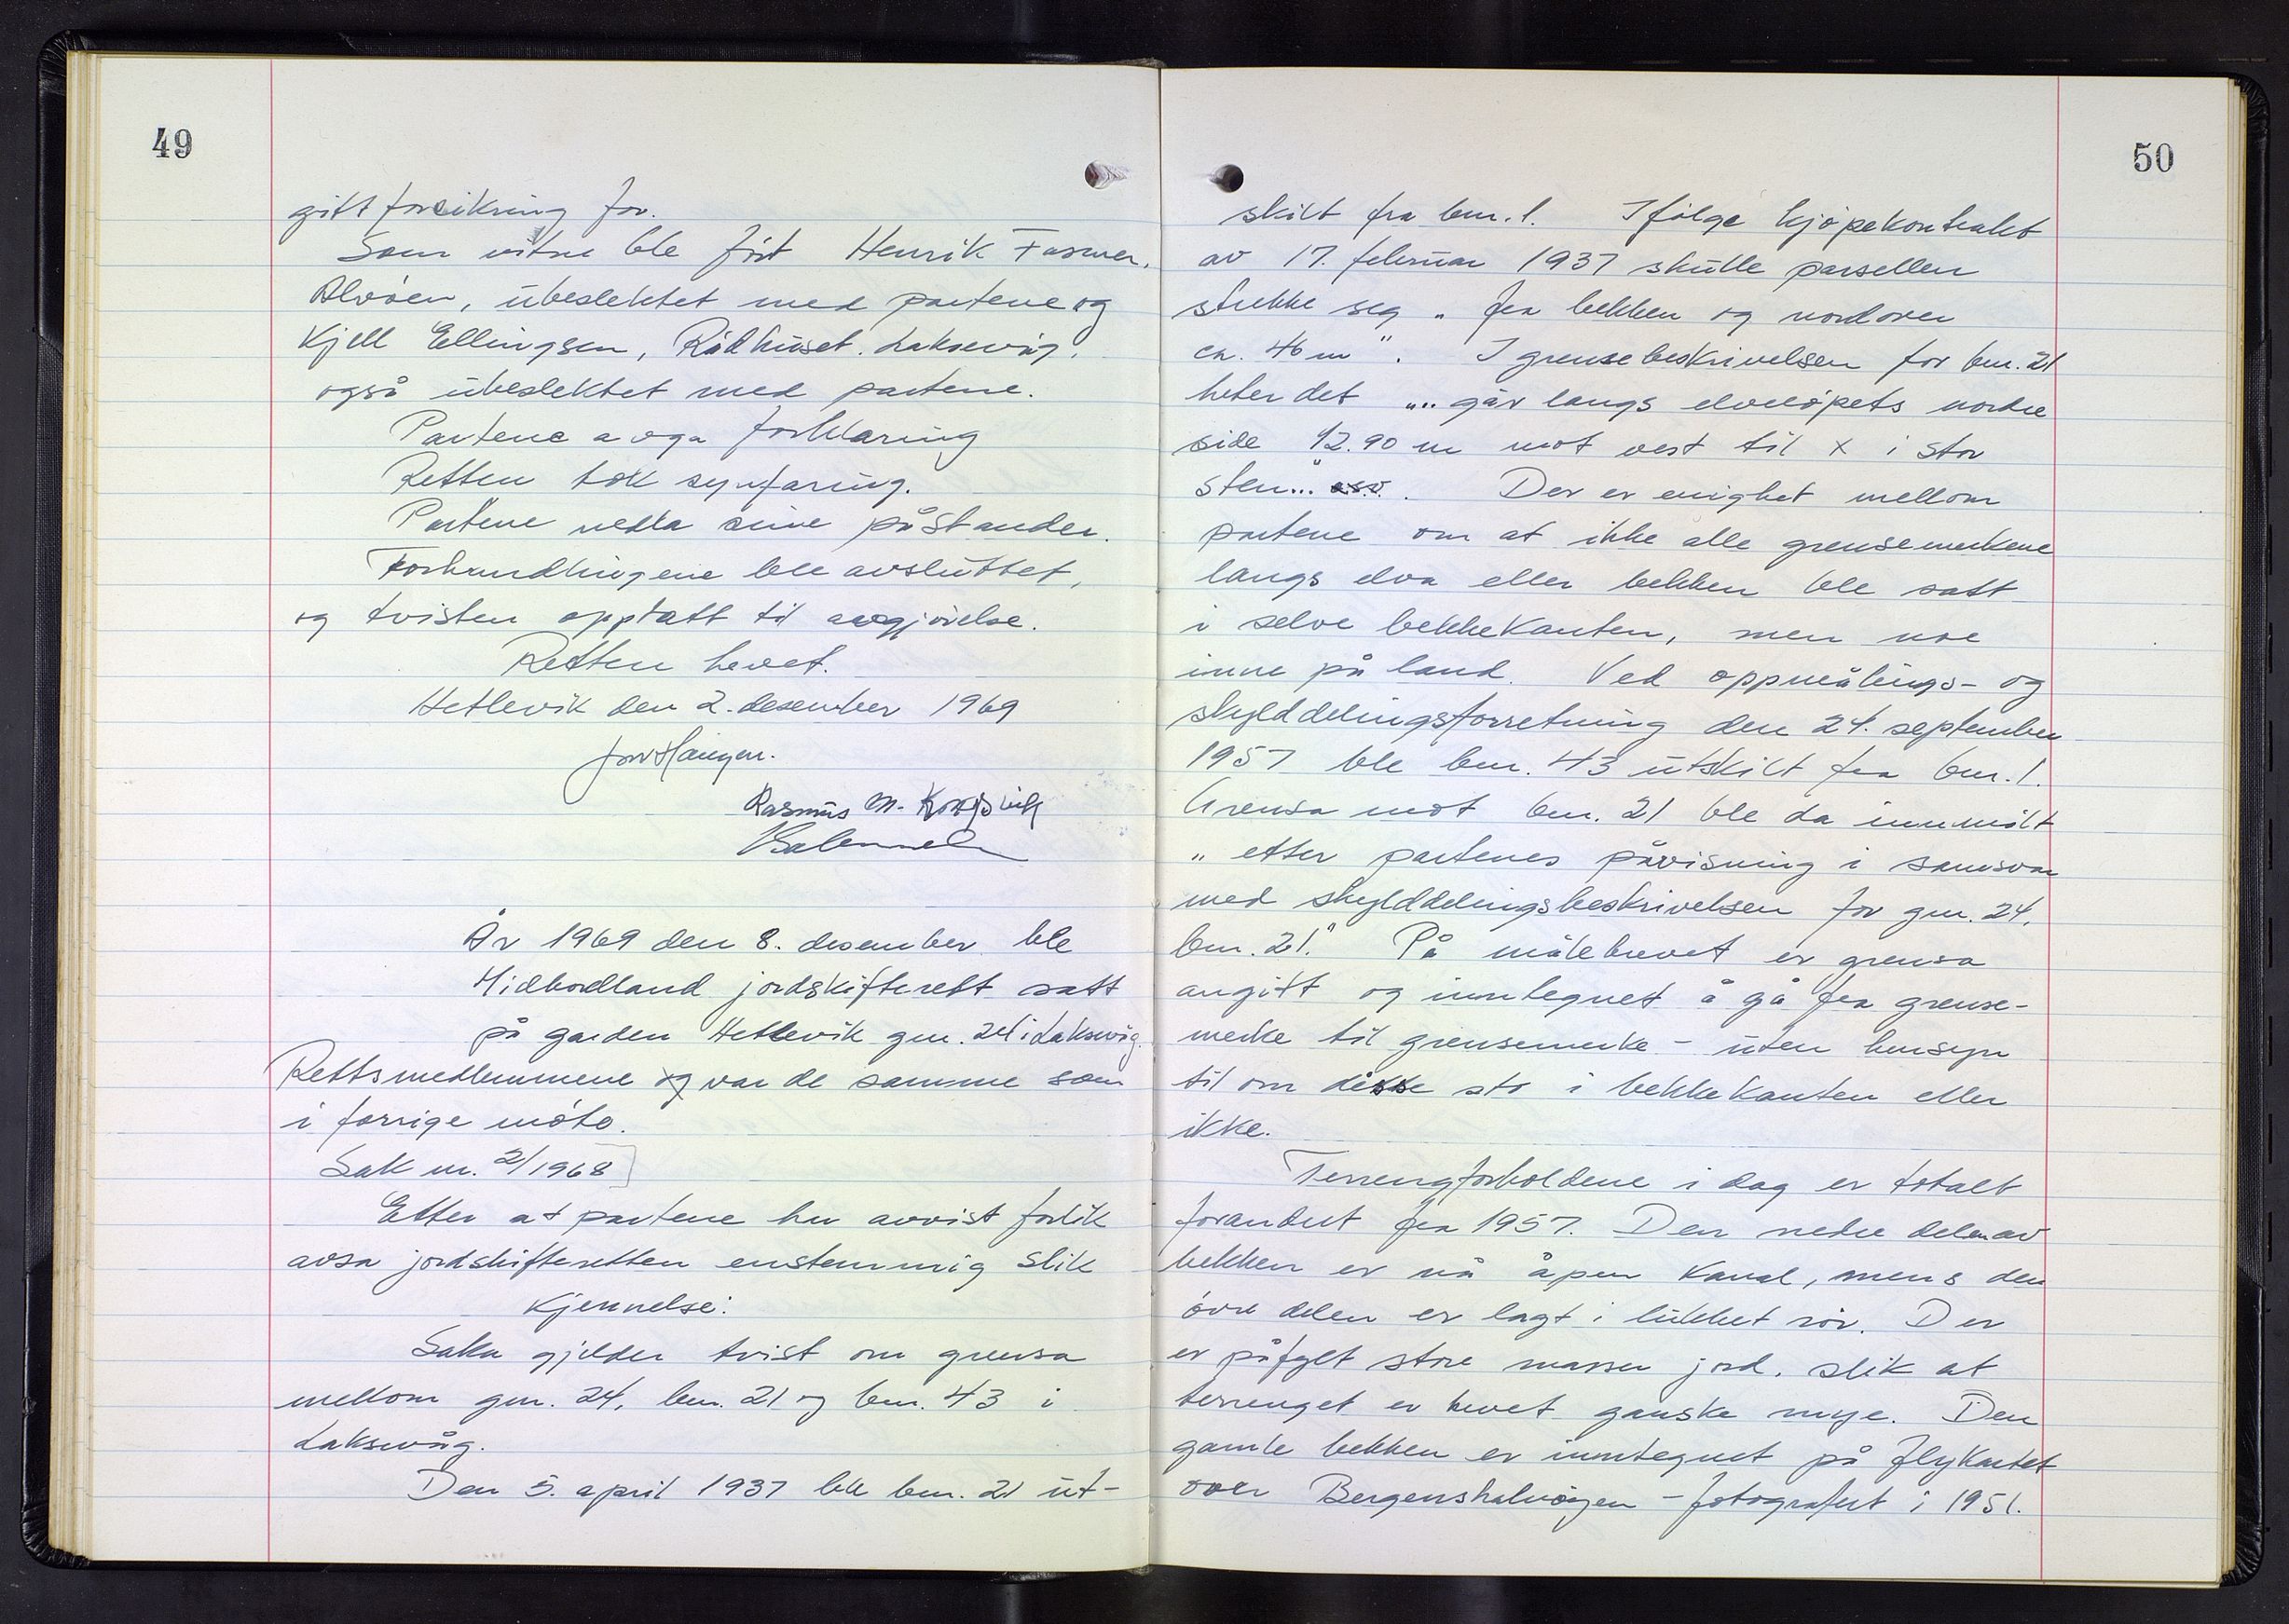 49
gitt forsikring for.
Som vitne ble ført Henrik Fasmer,
Alvøen, ubeslektet med partene og
Kjell Ellingsen, Rådhuset, Laksevåg,
også ubeslektet med partene.
Partene avga forklaring
Retten tok synfaring.
Partene nedla sine påstander.
Forhandlingene ble avsluttet,
og tvisten opptatt til avgjørelse.
Retten hevet.
Hetlevik den 2. desember 1969
Rasmus M.
År 1969 den 8. desember ble
Midhordland jordskifterett satt
på garden Hetlevik gnr. 24 i Laksevåg.
Rettsmedlemmene og var de samme som
i forrige møte.
Sak nr. 2/1968
Etter at partene har avvist forlik
avsa jordskifteretten enstemmig slik
kjennelse:
Saka gjelder tvist om grensa
mellom gnr. 24, bnr. 21 og bnr. 43 i
Laksevåg.
Den 5. april 1937 ble bnr. 21 ut-
50
skilt fra bnr. 1. Ifølge kjøpekontrakt
av 17. februar 1937 skulle parsellen
strekke seg „fra bekken og nordover
ca. 40 m". I grensebeskrivelsen for bnr. 21
heter det „.. går langs elveløpets nordre
side 12.90 m mot vest til x i stor
sten..." o.s.v. Der er enighet mellom
partene om at ikke alle grensemerkene
langs elva eller bekken ble satt
i selve bekkekanten, men noe
inne på land. Ved oppmålings- og
skylddelingsforretning den 24. september
1957 ble bnr. 43 utskilt fra bnr. 1.
Grensa mot bnr. 21 ble da innmålt
„etter partenes påvisning i samsvar
med skylddelingsbeskrivelsen for gnr. 24,
bnr. 21." På målebrevet er grensa
angitt og inntegnet å gå fra grense-
merke til grensemerke - uten hensyn
til om disse sto i bekkekanten eller
ikke.
Terrengforholdene i dag er totalt
forandret fra 1957. Den nedre delen av
bekken er nå åpen kanal, mens den
øvre delen er lagt i lukket rør. Der
er påfylt store masser jord, slik at
terrenget er hevet ganske mye. Den
gamle bekken er inntegnet på flykartet
over Bergenshalvøyen - fotografert i 1951.